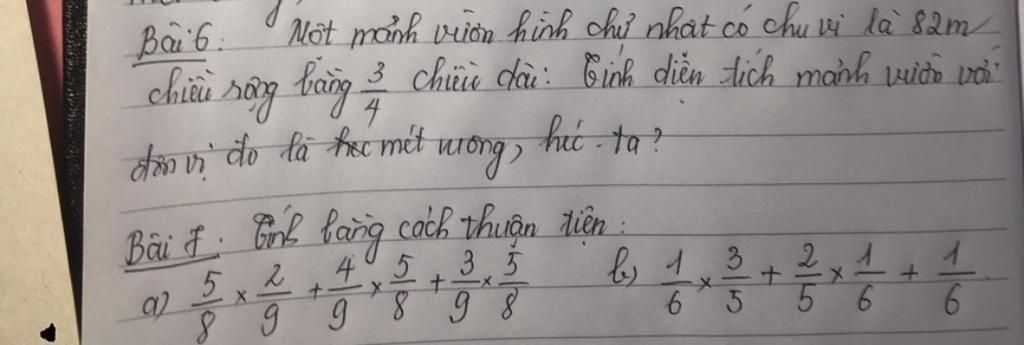 Bài 6: Một mảnh vườn hình chữ nhật có chu vi là 82m
chiều rộng bằng 3/4 chiều dài: Tính diện tích mảnh vườn với
đơn vị đo là mét vuông, héc-ta?
Bài 7. Tính bằng cách thuận tiện:
a) 5/8 × 2/9 + 4/9 × 5/8 + 3/9 × 5/8 b) 1/6 × 3/5 + 2/5 × 1/6 + 1/6